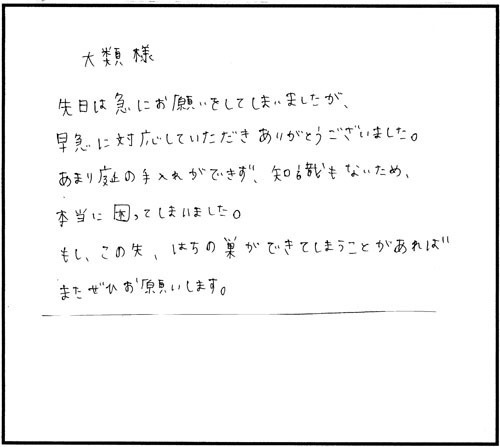 大類様
先日は急にお願いをしてしまいましたが、
早急に対応していただきありがとうございました。
あまり庭の手入れができず、知識もないため、
本当に困ってしまいました。
もし、この先、はちの巣ができてしまうことがあれば
またぜひお願いします。